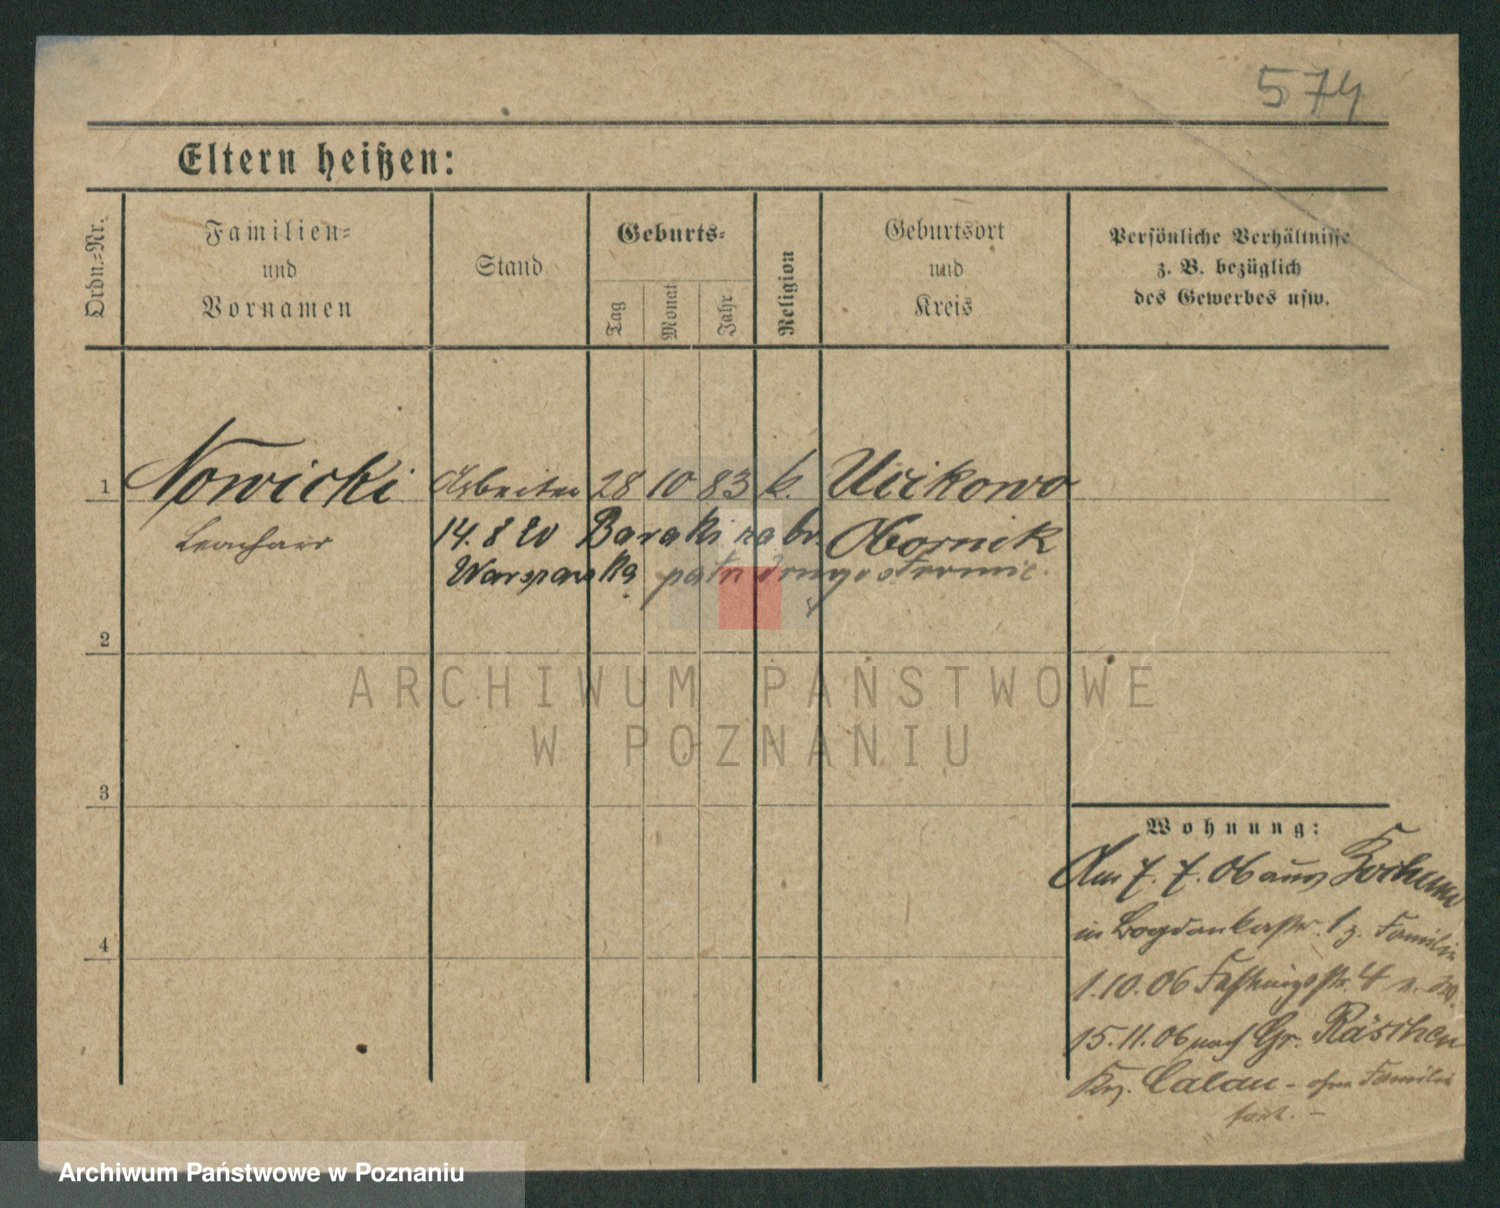 574
Eltern heißen:
Ordn.-Nr.
Familien- und Vornamen
Stand
Geburts-
Tag
Monat
Jahr
Religion
Geburtsort und Kreis
Persönliche Verhältnisse
z. B. bezüglich
des Gewerbes usw.
1 Nowicki Arbeiter 28 10 83 k. Ucikowo
14. 8 20 Baraki na br. Obornik
Warszawską patrz
2
ARCHIWUM PAŃSTWOWE
W POZNANIU
3
Wohnung:
Am 7. 7. 06 aus
in Bogdankastr. 1 z. Familie
4
1.10.06 Festungsstr. 4
15.11.06 nach Gr. Räschen
Krs. Calau - ohne Familie
fort. -
Archiwum Państwowe w Poznaniu